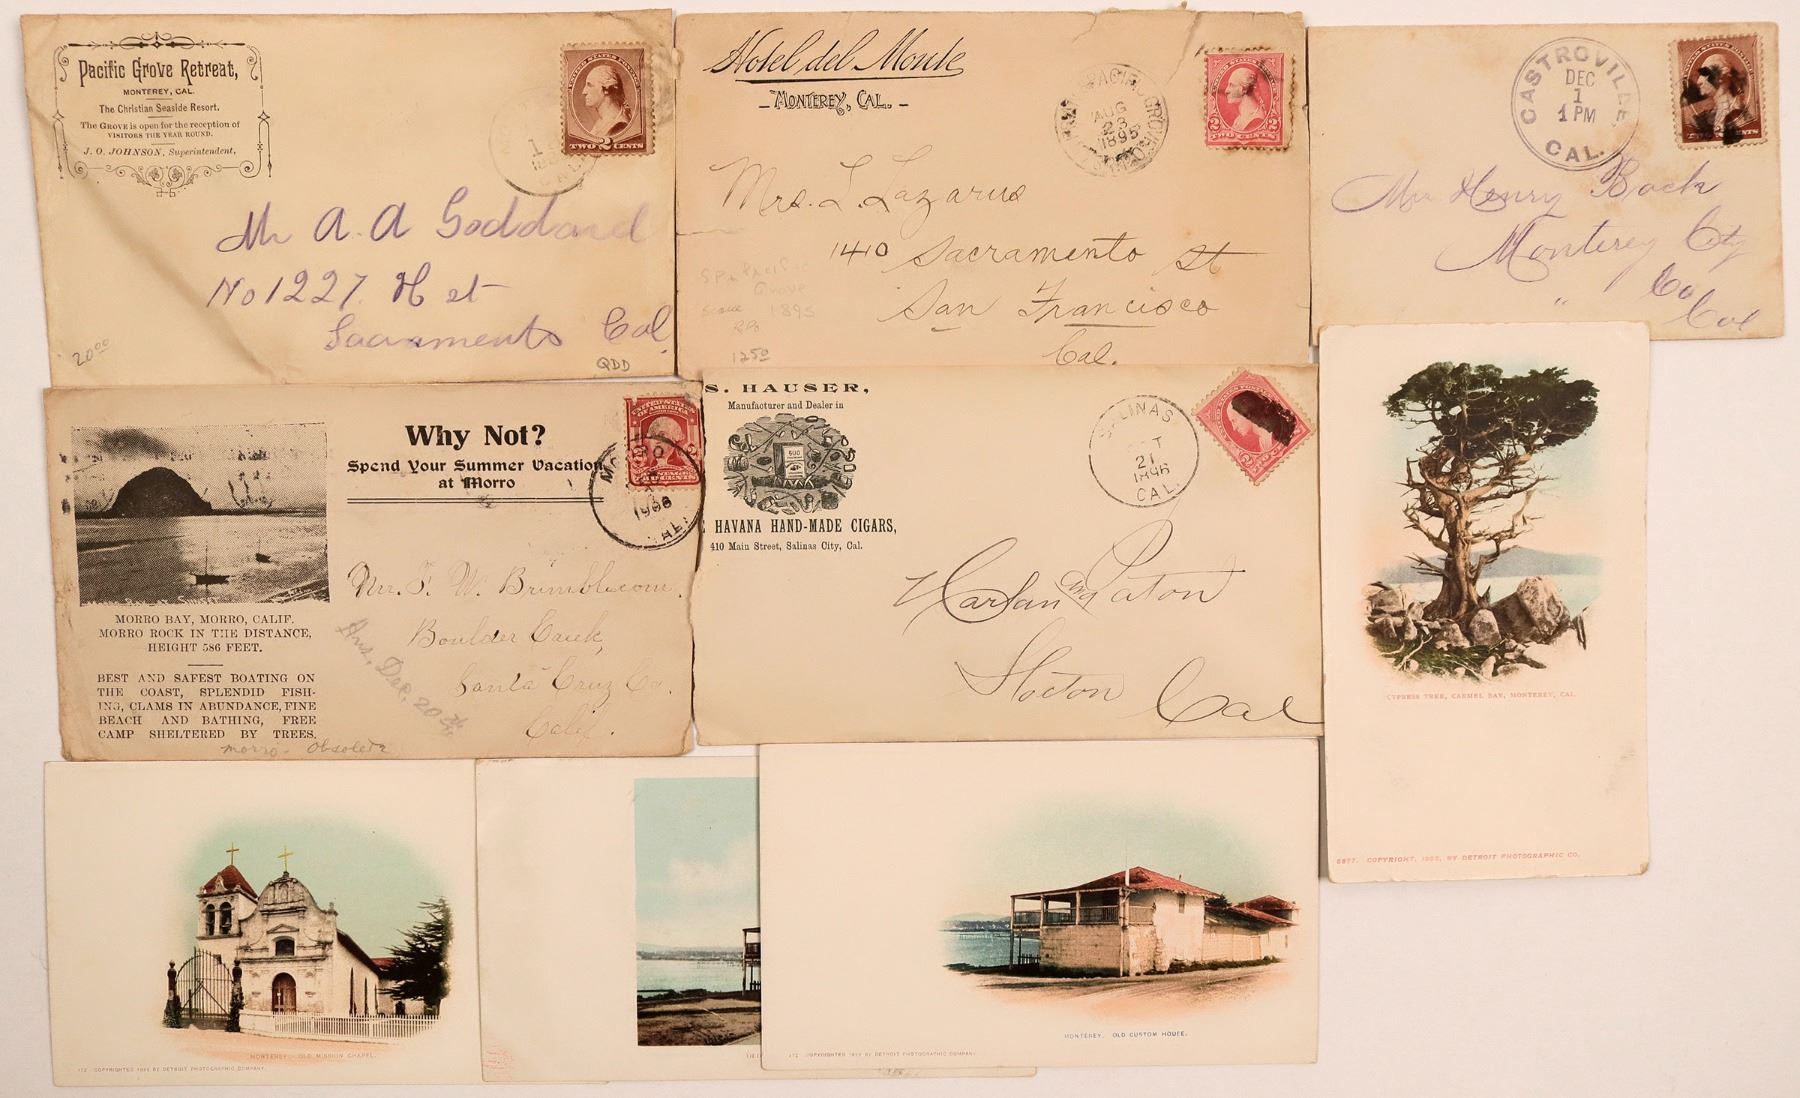 Pacific Grove Retreat,
MONTEREY, CAL.
The Christian Seaside Resort.
The GROVE is open for the reception of
VISITORS THE YEAR ROUND.
J. O. JOHNSON, Superintendent,
TWO 2 CENTS
Mr A. A Goddard
No 1227. H st
Sacramento Cal
20 00
QDD
Hotel del Monte
MONTEREY, CAL.
AUG
23
1895
TWO CENTS
Mrs. L. Lazarus
1410 Sacramento St
San Francisco
Cal.
Grove
1895
RPO
12 50
CASTROVILLE
DEC
1
1 PM
CAL.
Mr Henry Bock
Monterey City
" Co
Cal
Why Not?
Spend Your Summer Vacation
at Morro
1908
CAL.
MORRO BAY, MORRO, CALIF.
MORRO ROCK IN THE DISTANCE,
HEIGHT 586 FEET.
BEST AND SAFEST BOATING ON
THE COAST, SPLENDID FISH-
ING, CLAMS IN ABUNDANCE, FINE
BEACH AND BATHING, FREE
CAMP SHELTERED BY TREES.
Morro - Obsolete
Mr. F. W. Brimblecom.
Boulder Creek,
Santa Cruz Co.
Calif.
Ans. Dec. 20th
S. HAUSER,
Manufacturer and Dealer in
HAVANA HAND-MADE CIGARS,
410 Main Street, Salinas City, Cal.
SALINAS
OCT
21
1896
CAL.
Harlan and Paton
Stocton
Cal
CYPRESS TREE, CARMEL BAY, MONTEREY, CAL.
COPYRIGHT, BY DETROIT PHOTOGRAPHIC CO.
MONTEREY. OLD MISSION CHAPEL.
172. COPYRIGHTED BY DETROIT PHOTOGRAPHIC COMPANY.
MONTEREY. OLD CUSTOM HOUSE.
COPYRIGHTED BY DETROIT PHOTOGRAPHIC COMPANY